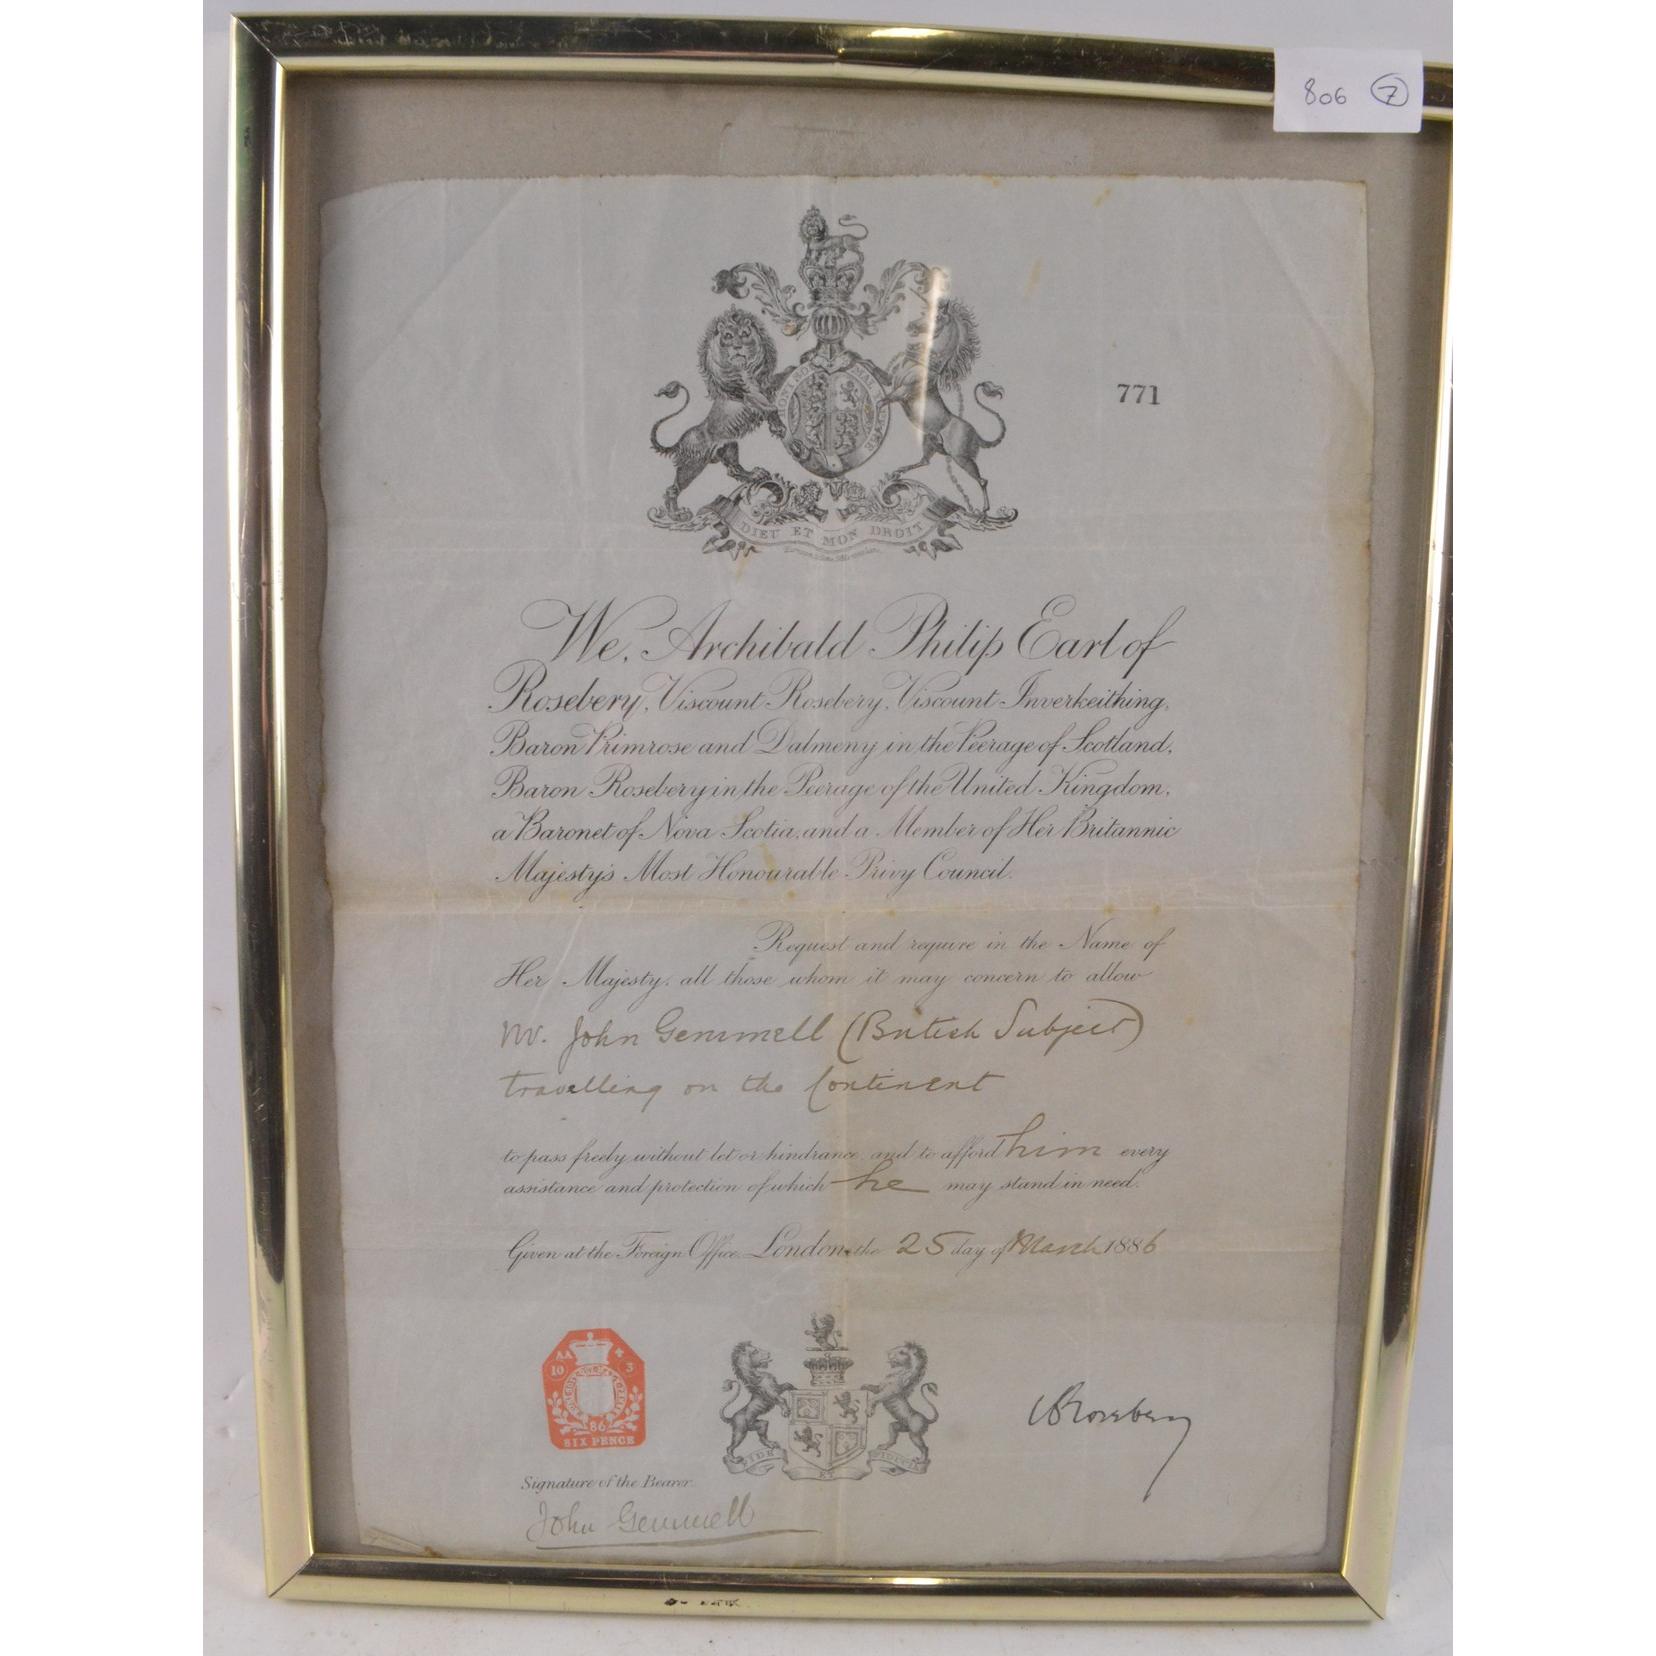 806 7
771
DIEU ET MON DROIT
We, Archibald Philip Earl of
Rosebery, Viscount Rosebery, Viscount Inverkeithing,
Baron Primrose and Dalmeny in the Peerage of Scotland,
Baron Rosebery in the Peerage of the United Kingdom,
a Baronet of Nova Scotia, and a Member of Her Britannic
Majesty's Most Honourable Privy Council.
Request and require in the Name of
Her Majesty, all those whom it may concern to allow
Mr. John Gemmell (British Subject)
travelling on the Continent
to pass freely without let or hindrance, and to afford him every
assistance and protection of which he may stand in need.
Given at the Foreign Office, London, the 25 day of March 1886
AA 4
10 3
86
SIX PENCE
FIDE ET FIDUCIA
Rosebery
Signature of the Bearer.
John Gemmell